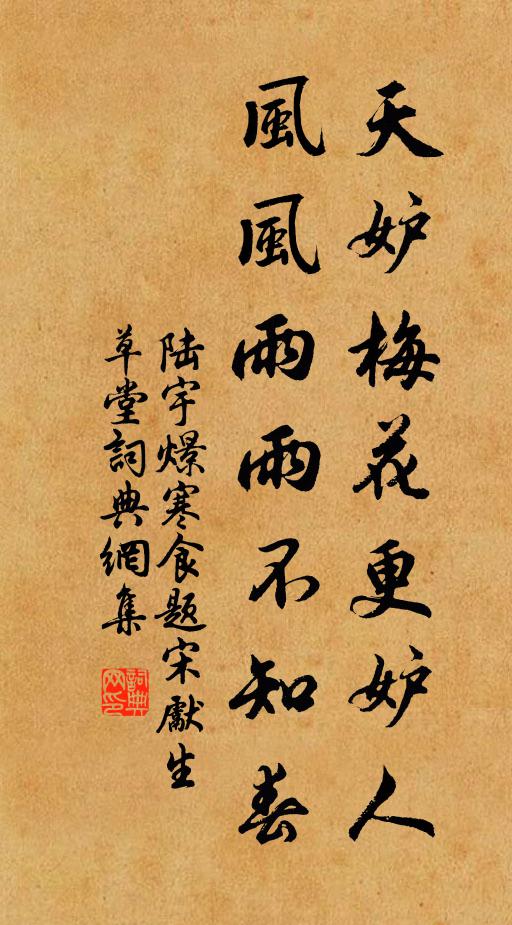 天妒梅花更妒人
風風雨雨不知春
陆宇燝寒食題宋獻生
草堂詞典網集
詞典网印